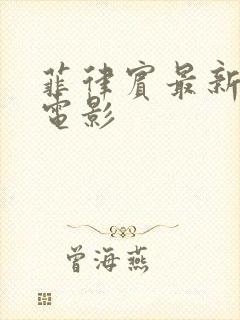 菲律宾最新
电影
曾海燕